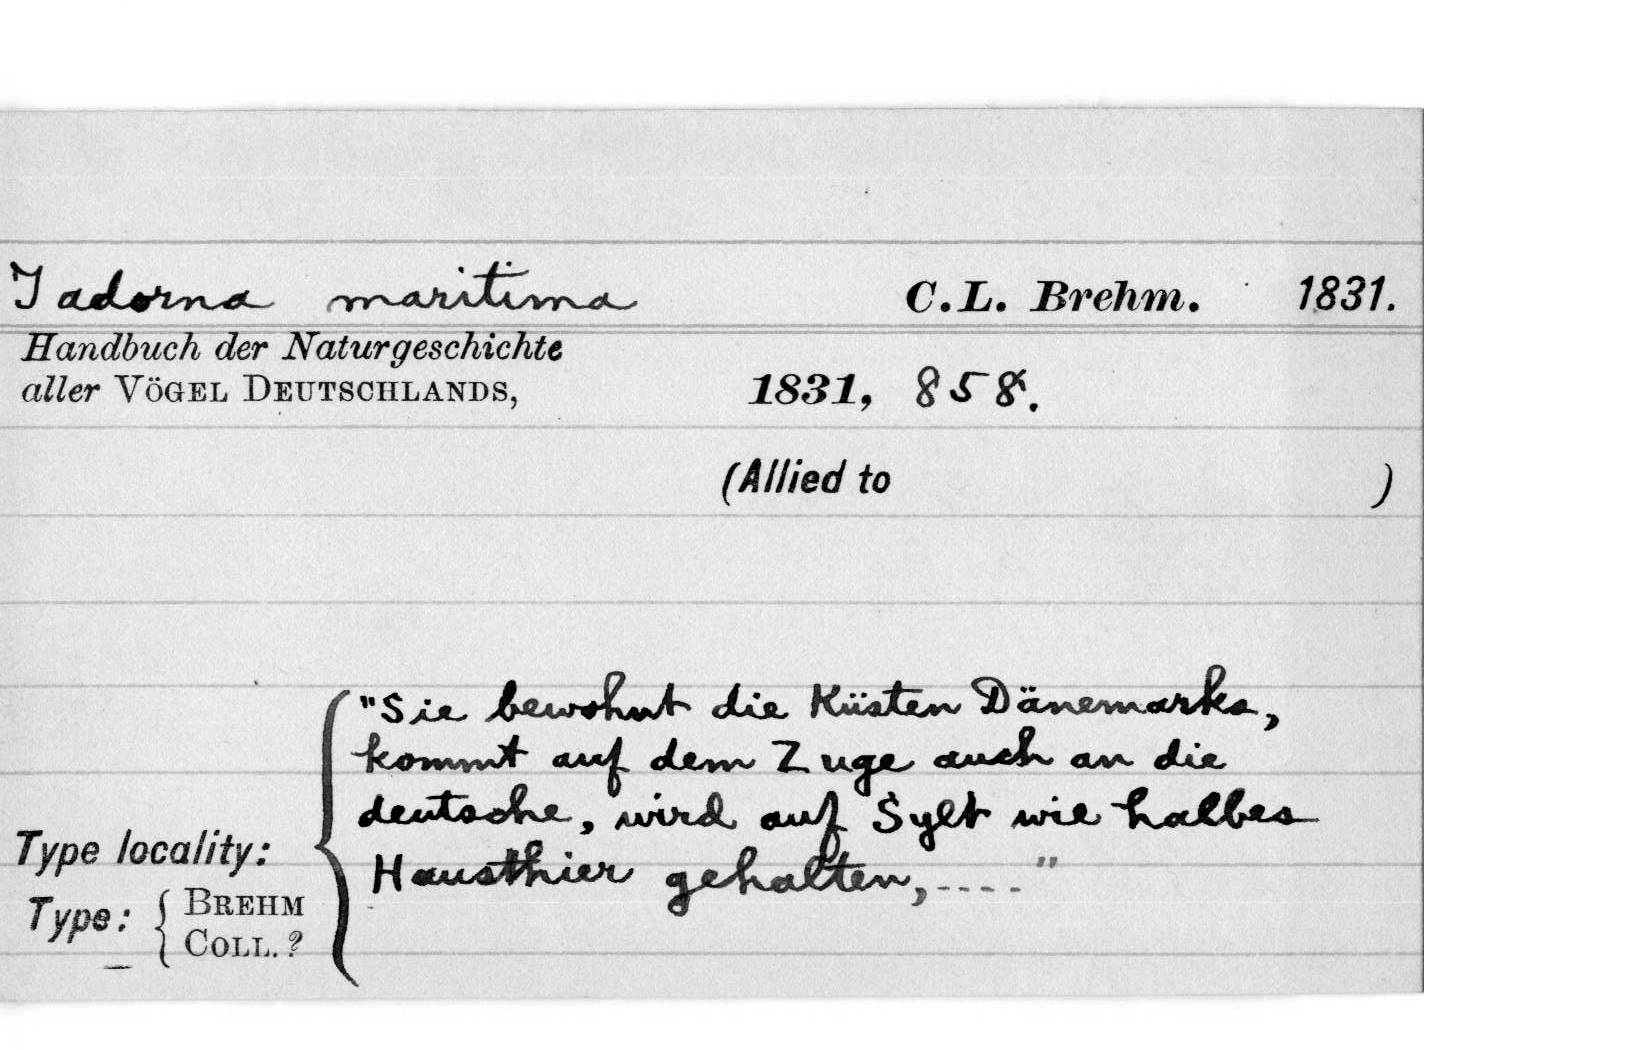 Tadorna maritima C.L. Brehm. 1831.
Handbuch der Naturgeschichte
aller VÖGEL DEUTSCHLANDS, 1831, 858.
(Allied to )
"Sie bewohnt die Küsten Dänemarks,
kommt auf dem Zuge auch an die
deutsche, wird auf Sylt wie halbes
Type locality:
Hausthier gehalten,----"
Type: { BREHM
COLL. ?